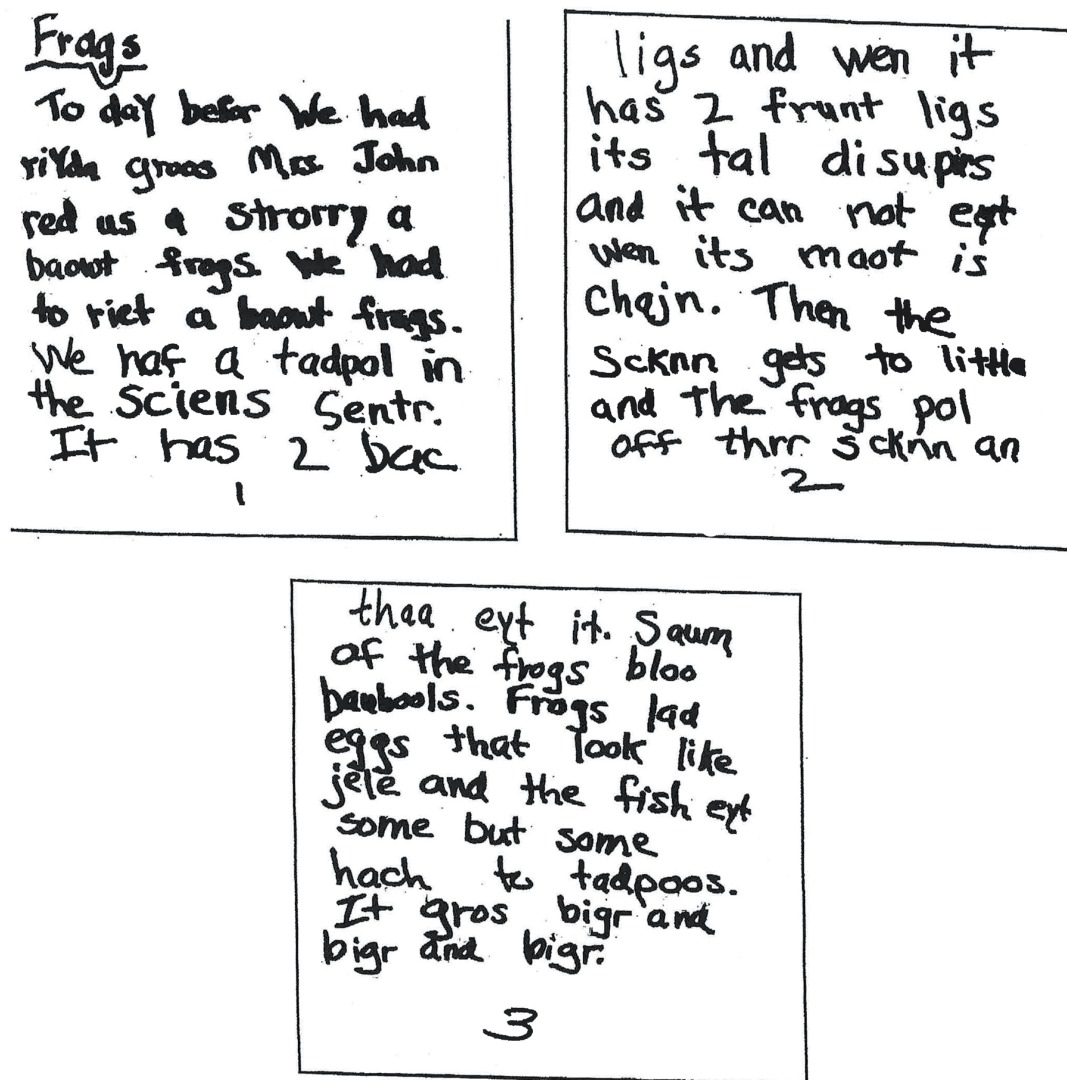 Frags
To day befor We had
riYda groos Mrs. John
red us a strorry a
baowt frogs. We had
to riet a baowt frags.
We haf a tadpol in
the sciens Sentr.
It has 2 bac
1
ligs and wen it
has 2 frunt ligs
its tal disupirs
and it can not eyt
wen its maot is
chajn. Then the
Scknn gets to little
and The frags pol
off thrr scknn an
2
thaa eyt it. Saum
af the frogs bloo
baubools. Frogs lad
eggs that look like
jele and the fish eyt
some but some
hach to tadpoos.
It gros bigr and
bigr and bigr.
3